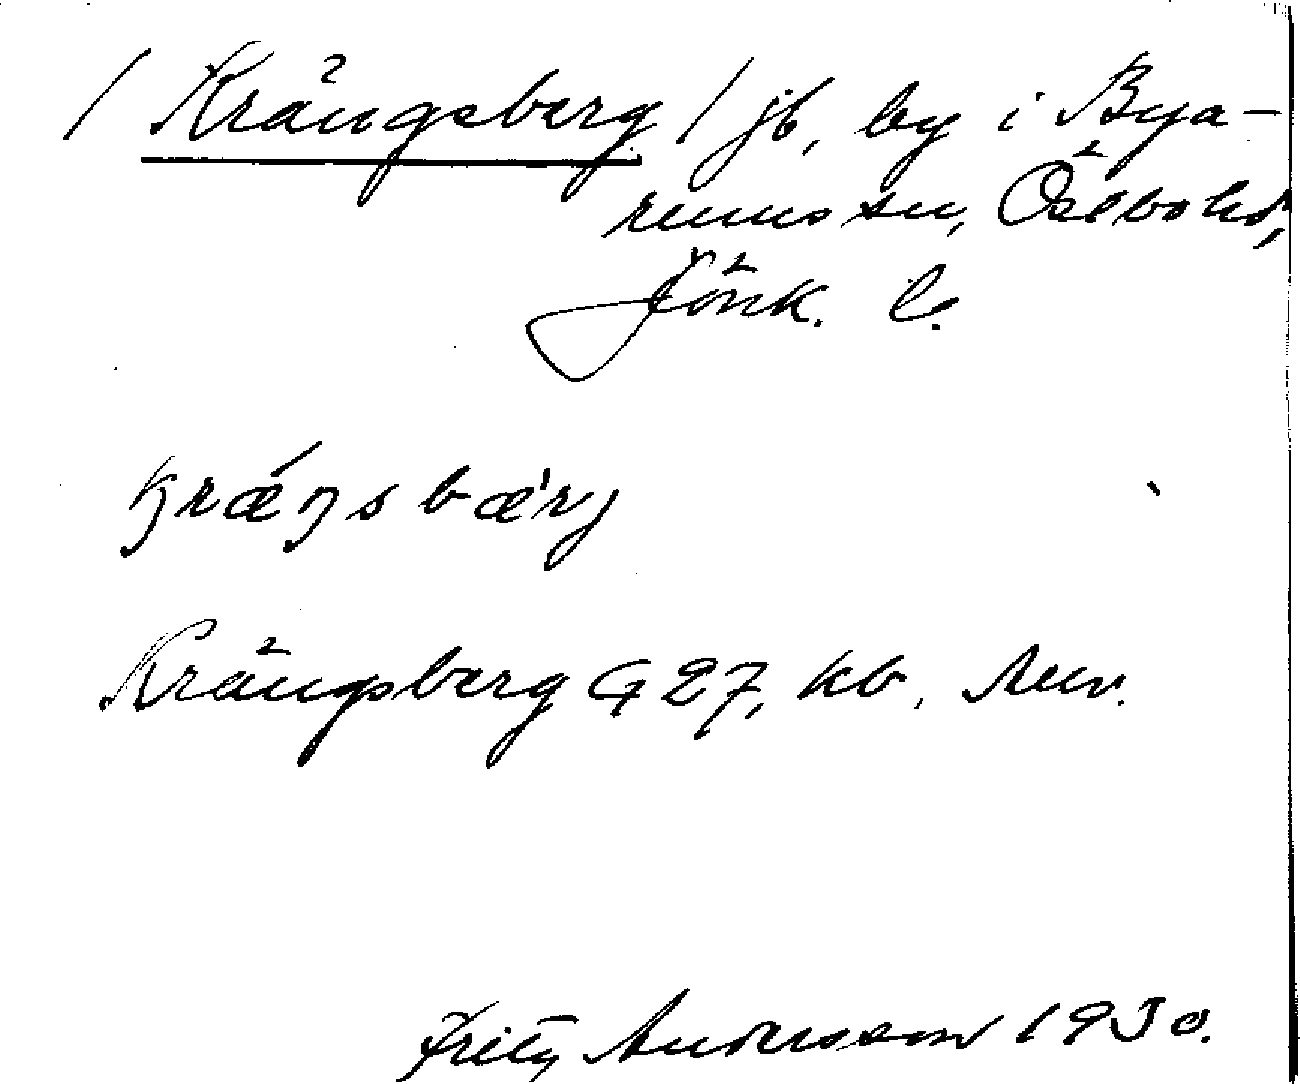 / Krängsberg / jb, by i Bya-
rums sn, Östbo hd,
Jönk. l.
kræŋsbærj
Krängsberg G 27, kb,
Fritz Andersson 1930.